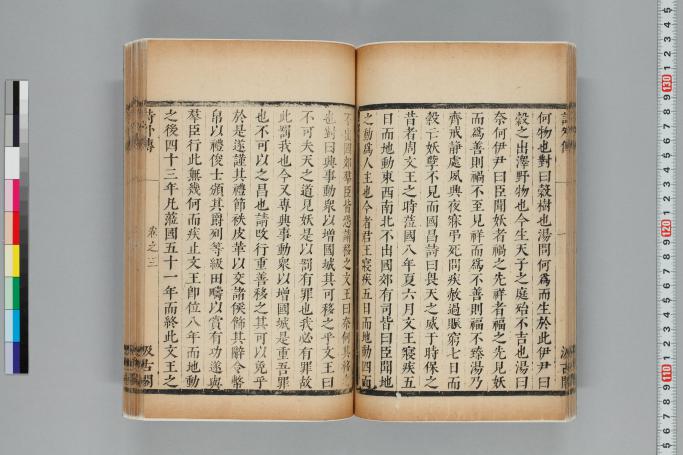 何物也對曰穀樹也湯問何爲而生於此伊尹曰
穀之出澤野物也今生天子之庭殆不吉也湯曰
奈何伊尹曰臣聞妖者禍之先祥者福之先見妖
而爲善則禍不至見祥而爲不善則福不臻湯乃
齊戒靜處夙興夜寐弔死問疾赦過賑窮七日而
穀亡妖孽不見而國昌詩曰畏天之威于時保之
昔者周文王之時蒞國八年夏六月文王寢疾五
日而地動東西南北不出國郊有司皆曰臣聞地
之動爲人主也今者君王寢疾五日而地動四面
不出國郊羣臣皆恐請移之文王曰奈何其移之
也對曰興事動衆以增國城其可移之乎文王曰
不可夫天之道見妖是以罰有罪也我必有罪故
此罰我也今又專興事動衆以增國城是重吾罪
也不可以之昌也請改行重善移之其可以免乎
於是遂謹其禮節袟皮革以交諸侯飾其辭令幣
帛以禮俊士頒其爵列等級田疇以賞有功遂與
羣臣行此無幾何而疾止文王卽位八年而地動
之後四十三年凡蒞國五十一年而終此文王之
詩外傳
卷之三
汲古閣